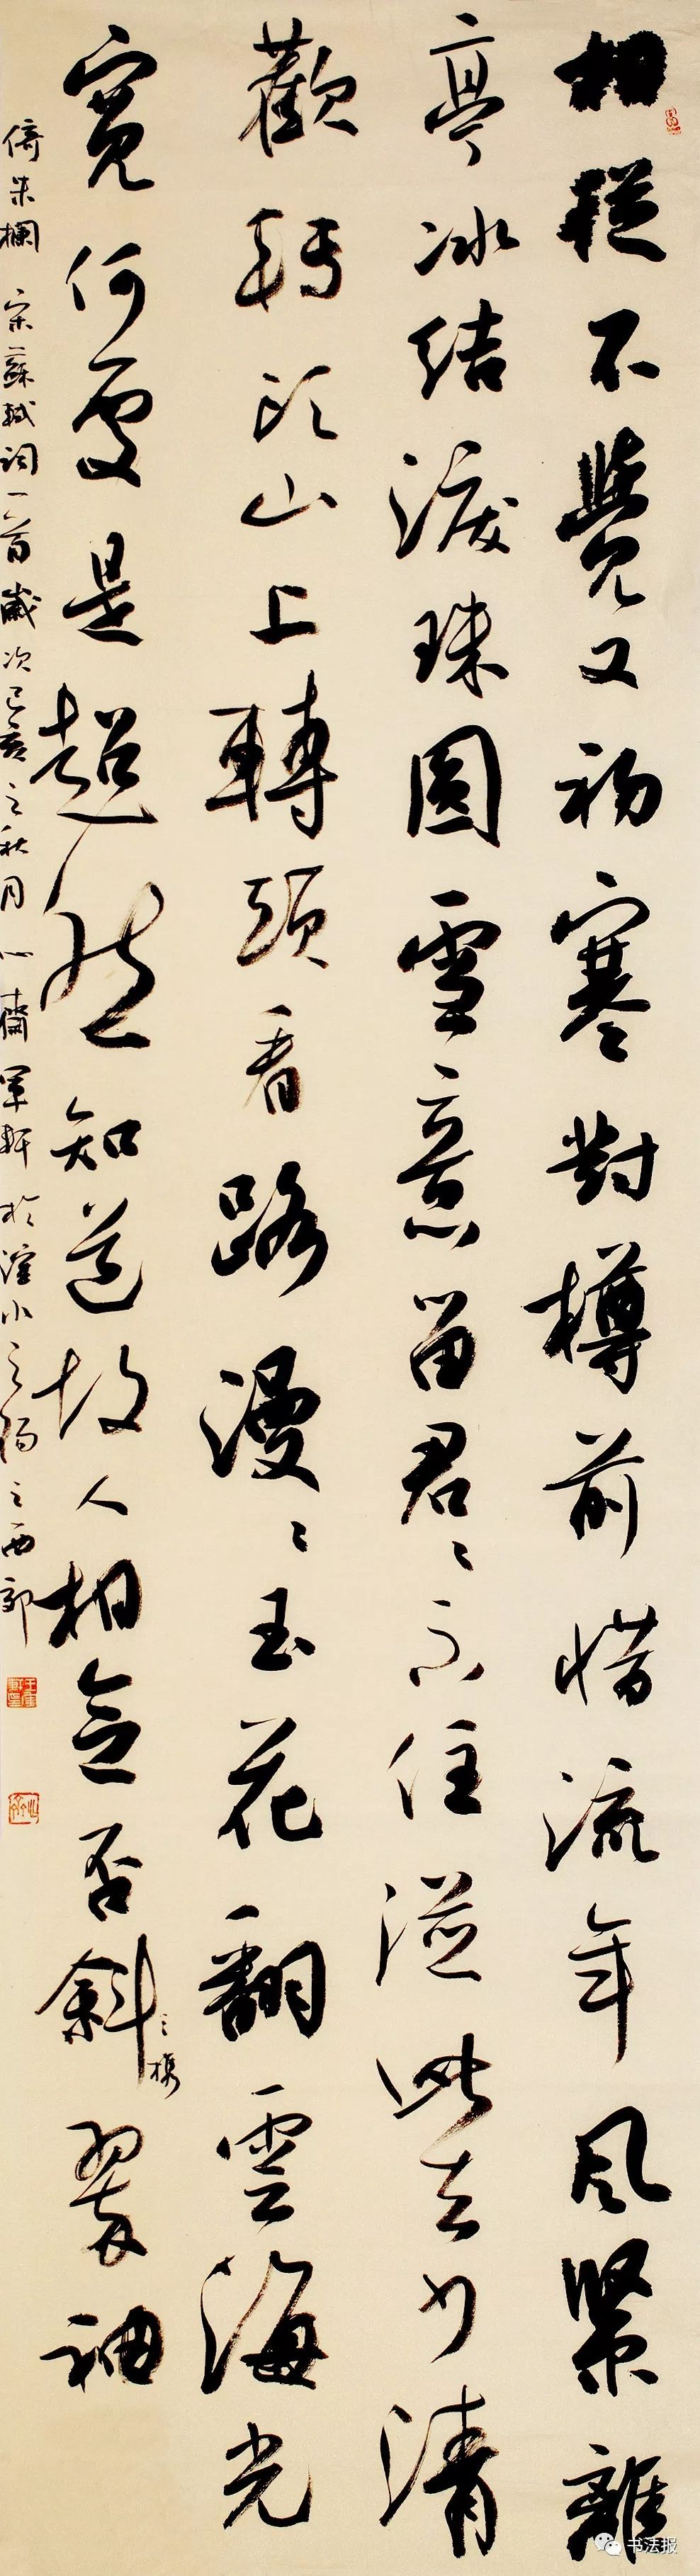 相從不覺又初寒對樽前惜流年風緊離
亭冰結淚珠圓雪意留君々不住從此去少清
歡轉頭山上轉頭看路漫々玉花翻雲海光
寬何處是超然知道故人相念否斜翠袖
携
倚朱欄 宋蘇軾詞一首歲次己亥之秋月心齋軍軒於滻水之陽之西郭
书法报